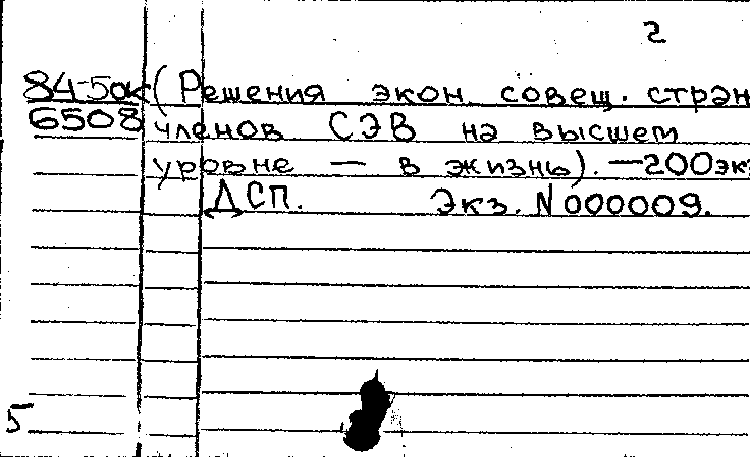 2
84-5ок (Решения экон. совещ. стран
6508 членов СЭВ на высшем
уровне — в жизнь). —200экз
ДСП. Экз. N 000009.
5